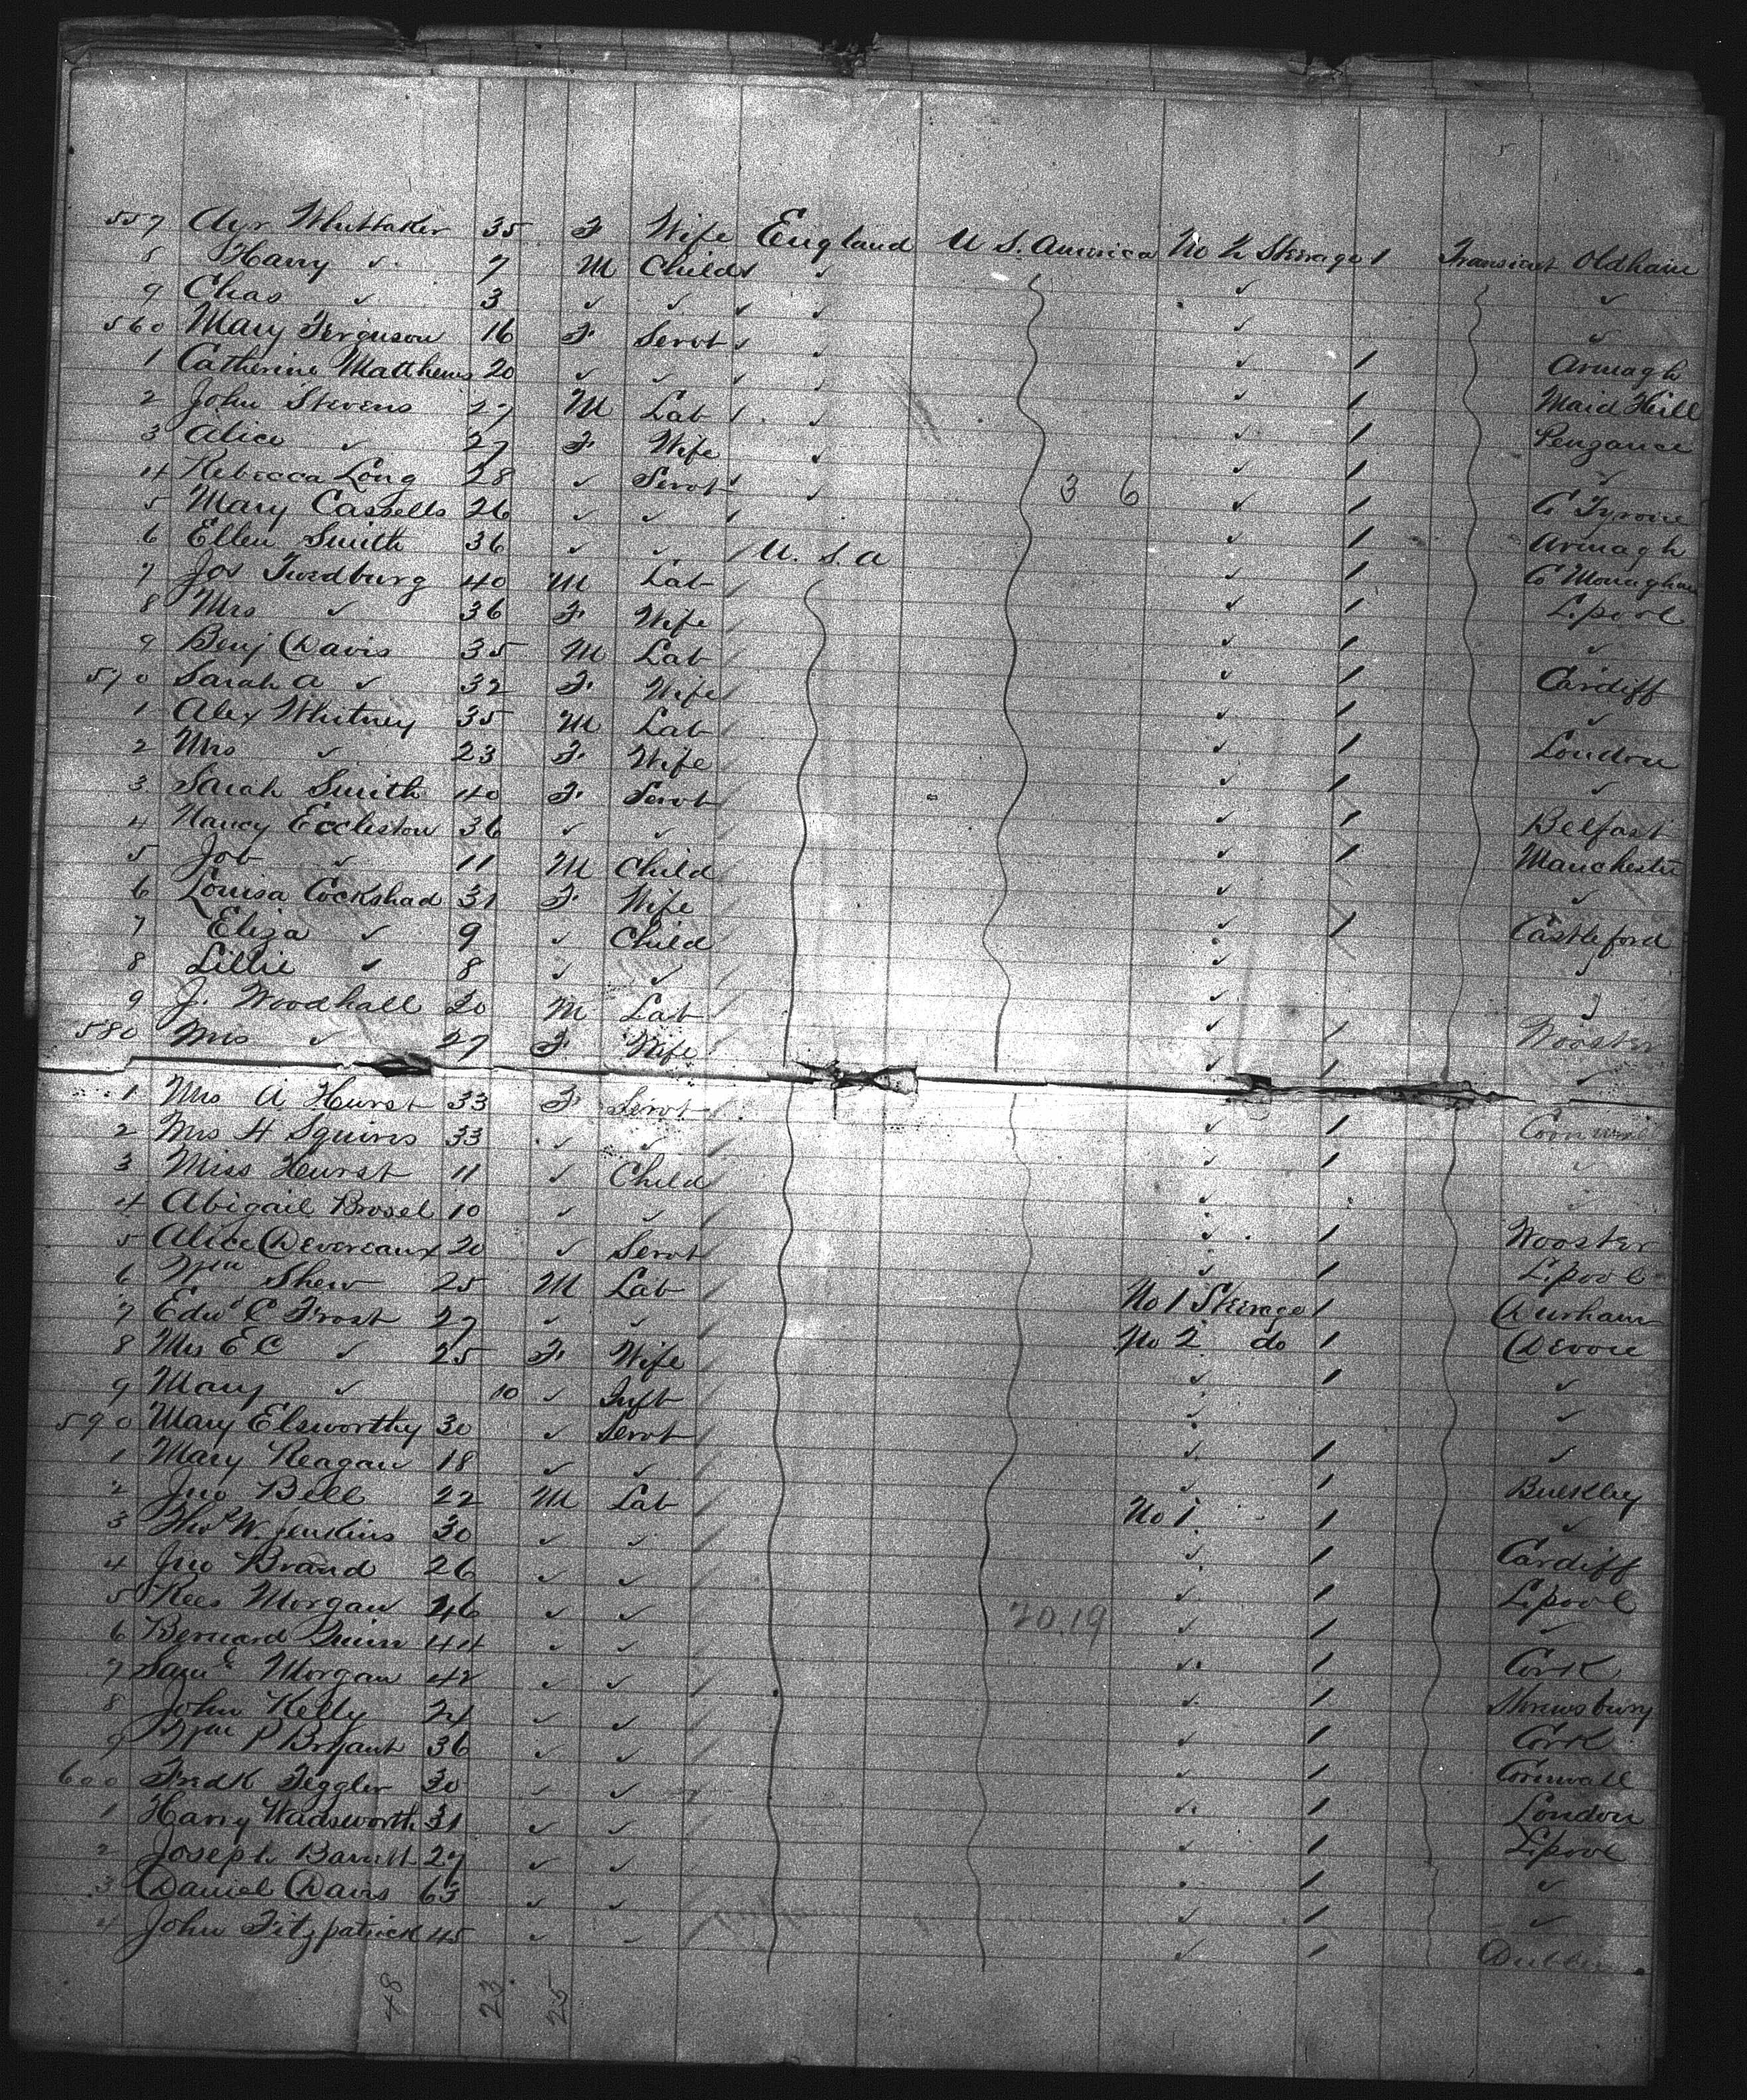 557 Ayr Whittaker 35 F Wife England U.S. America No 2 Steerage 1 Transient Oldham
8 Harry ✓ 7 M Child ✓ ✓ ✓ ✓
9 Chas ✓ 3 ✓ ✓ ✓ ✓ ✓ ✓
560 Mary Ferguson 16 F Servt ✓ ✓ ✓ 1 Armagh
1 Catherine Matthews 20 ✓ ✓ ✓ ✓ ✓ 1 Maid Hill
2 John Stevens 27 M Lab / ✓ ✓ 1 Penzance
3 Alice ✓ 27 F Wife ✓ ✓ 1 ✓
4 Rebecca Long 28 ✓ Servt ✓ ✓ 3 6 ✓ 1 Co Tyrone
5 Mary Cassells 26 ✓ ✓ / ✓ 1 Armagh
6 Ellen Smith 36 ✓ ✓ / U.S.A ✓ 1 Co Monaghan
7 Jos Twedburg 40 M Lab / ✓ 1 L.pool
8 Mrs ✓ 36 F Wife / ✓ 1 ✓
9 Benj Davis 35 M Lab / ✓ 1 Cardiff
570 Sarah A ✓ 32 F Wife / ✓ 1 ✓
1 Alex Whitney 35 M Lab / ✓ 1 London
2 Mrs ✓ 23 F Wife / ✓ 1 ✓
3 Sarah Smith 40 F Servt / ✓ 1 Belfast
4 Nancy Eccleston 36 ✓ ✓ / ✓ 1 Manchester
5 Job ✓ 11 M Child / ✓ ✓
6 Louisa Cockshad 31 F Wife / ✓ 1 Castleford
7 Eliza ✓ 9 ✓ Child / ✓ ✓
8 Lillie ✓ 8 ✓ ✓ / ✓ ✓
9 J. Woodhall 20 M Lab / ✓ 1 Wooster
580 Mrs ✓ 27 F Wife / ✓ 1 ✓
1 Mrs A Hurst 33 F Servt / ✓ 1 Cornwall
2 Mrs H Squires 33 ✓ ✓ / ✓ 1 ✓
3 Miss Hurst 11 ✓ Child / ✓ ✓
4 Abigail Brosel 10 ✓ ✓ / ✓ 1 Wooster
5 Alice Devereaux 20 ✓ Servt / ✓ 1 L.pool
6 Wm Shew 25 M Lab / No 1 Steerage 1 Durham
7 Edwd C Frost 27 ✓ ✓ / No 2 do 1 Devon
8 Mrs E C ✓ 25 F Wife / ✓ 1 ✓
9 Mary ✓ 10 ✓ Inft / ✓ ✓
590 Mary Elsworthy 30 ✓ Servt / ✓ 1 ✓
1 Mary Reagan 18 ✓ ✓ / ✓ 1 Bulkley
2 Jno Bell 22 M Lab / No 1 1 ✓
3 Thos W. Jenkins 30 ✓ ✓ / ✓ 1 Cardiff
4 Jno Brand 26 ✓ ✓ / ✓ 1 L.pool
5 Rees Morgan 46 ✓ ✓ / 20.19 ✓ 1 ✓
6 Bernard Quinn 44 ✓ ✓ / ✓ 1 Cork
7 Saml Morgan 42 ✓ ✓ / ✓ 1 Shrewsbury
8 John Kelly 24 ✓ ✓ / ✓ 1 Cork
9 Wm P Bryant 36 ✓ ✓ / ✓ 1 Cornwall
600 Fredk Teggler 30 ✓ ✓ / ✓ 1 London
1 Harry Wadsworth 31 ✓ ✓ ✓ 1 L.pool
2 Joseph Barrett 27 ✓ ✓ ✓ 1 ✓
3 Daniel Davis 63 ✓ ✓ ✓ 1 ✓
4 John Fitzpatrick 45 ✓ ✓ ✓ 1 Dublin
48 23 25